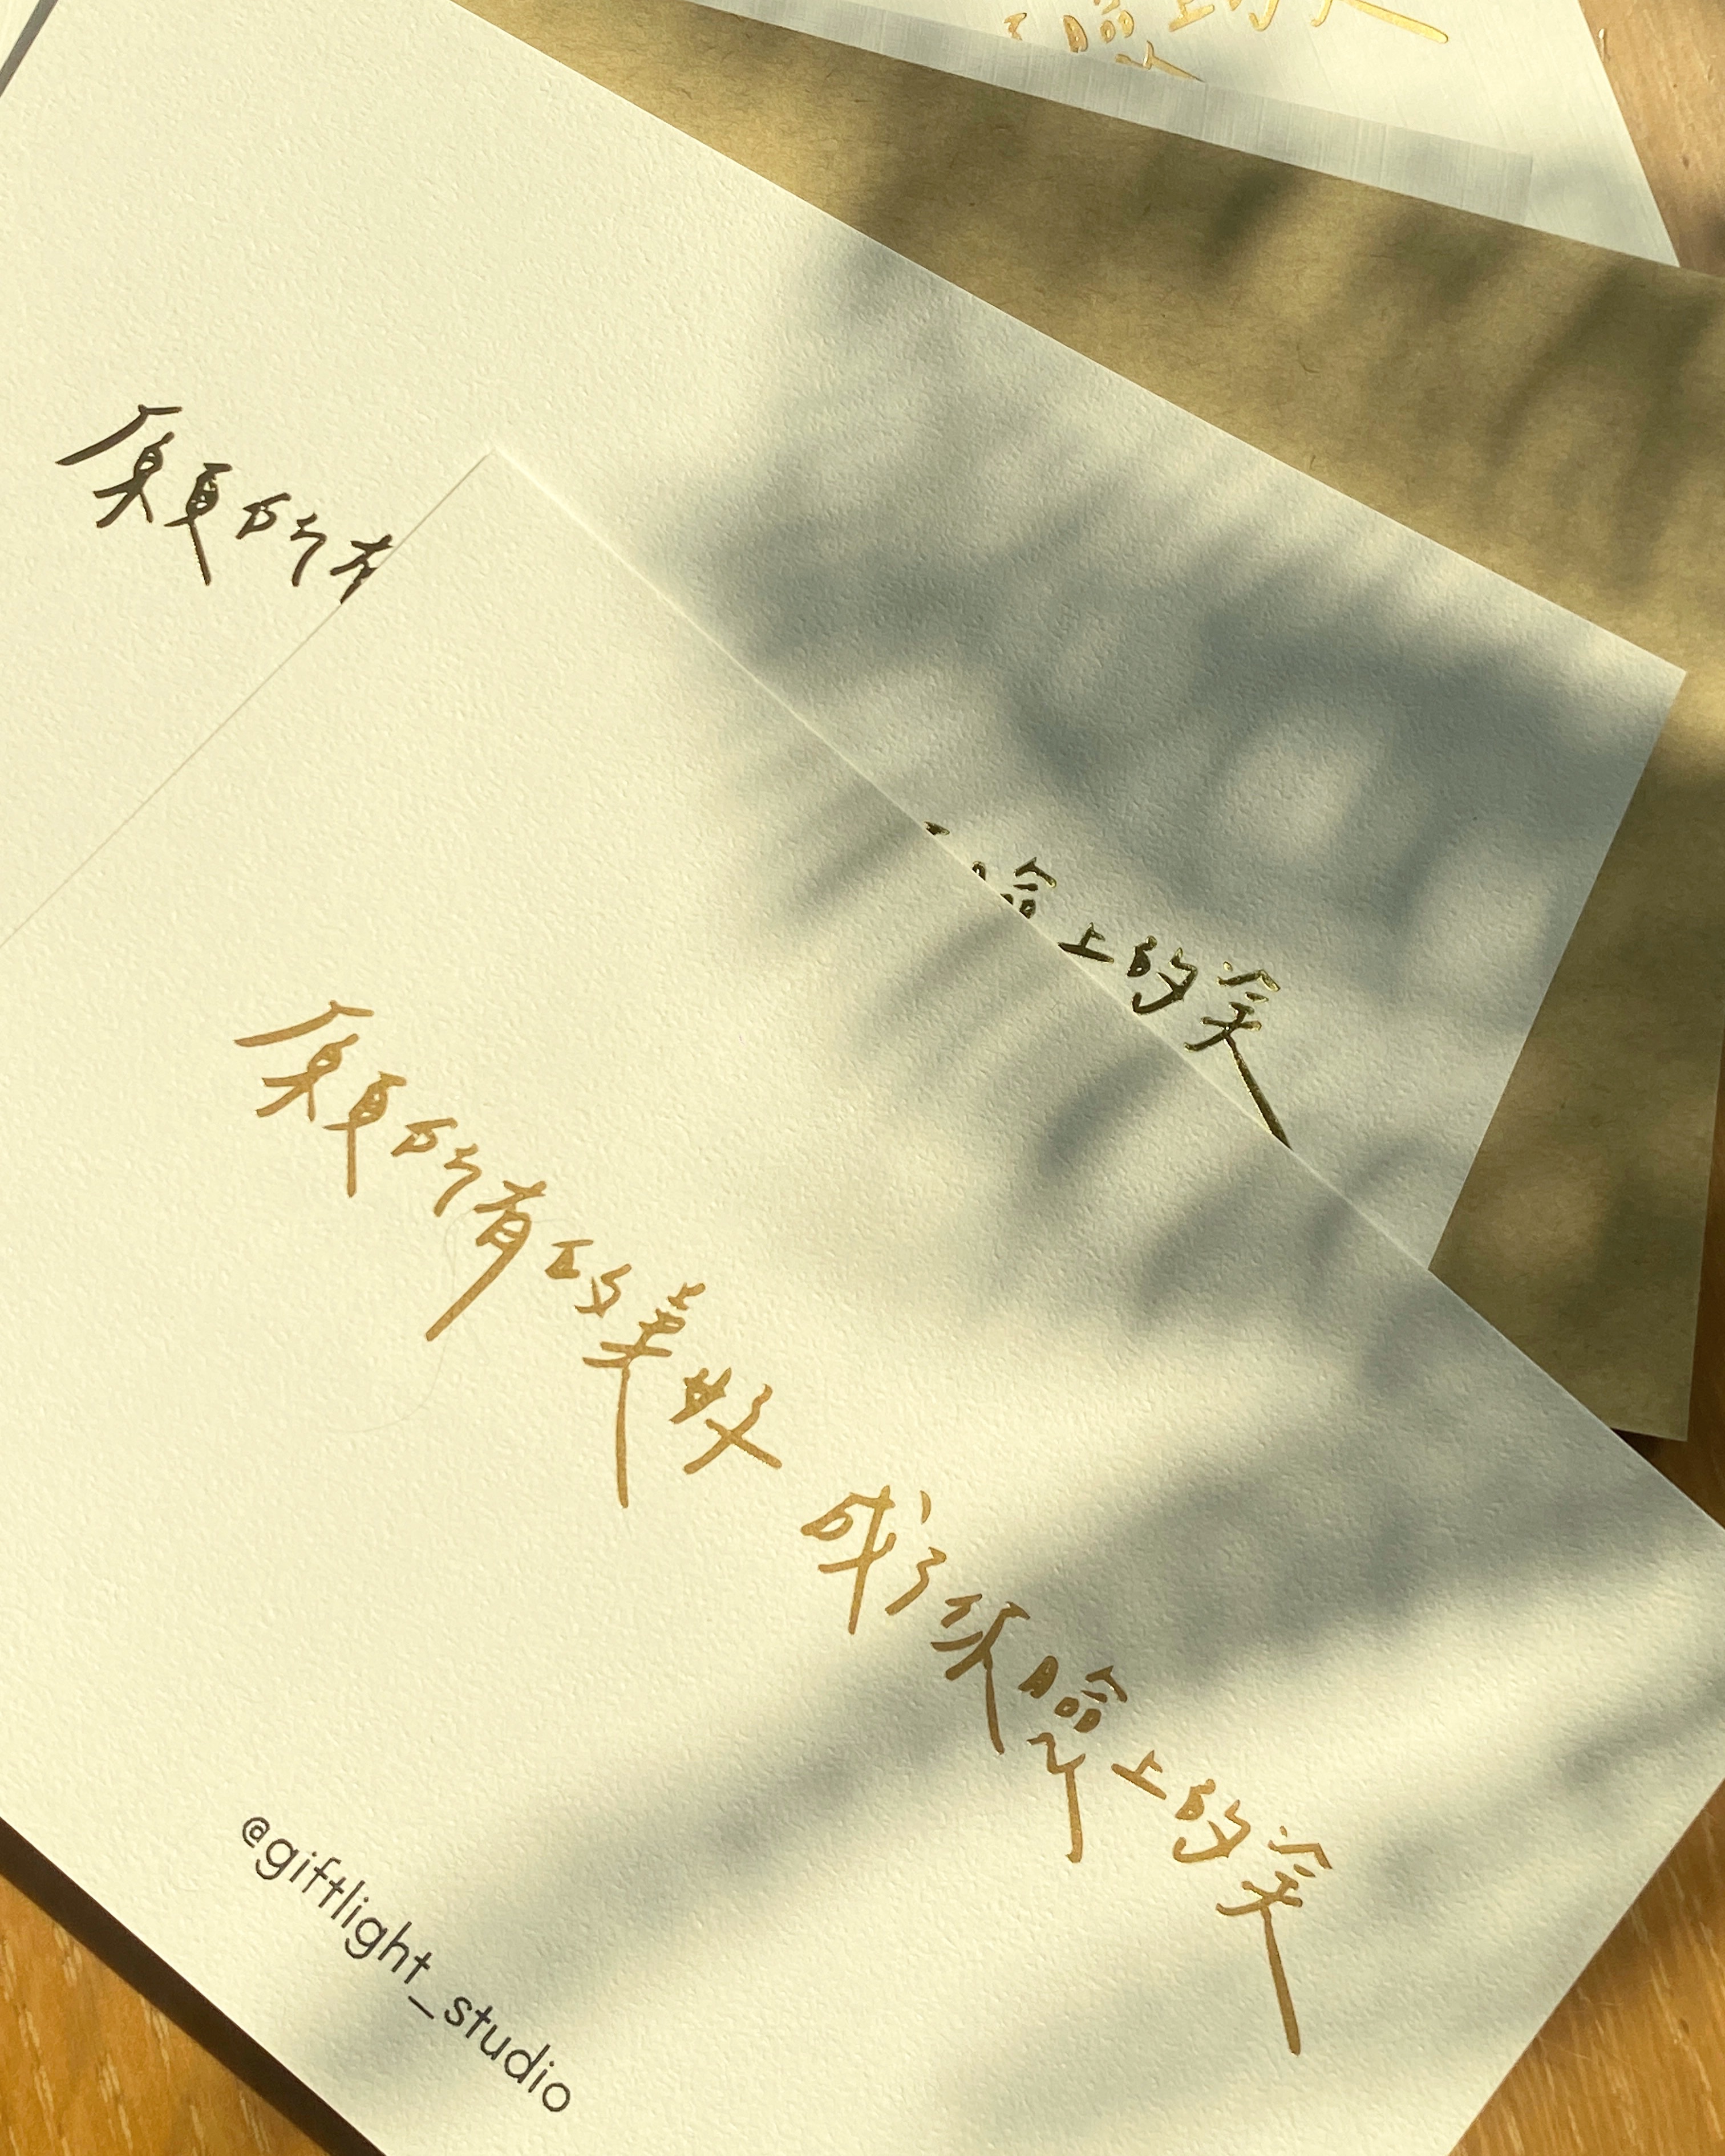 願所有
臉上的笑
願所有的美好 成了你臉上的笑
@giftlight_studio